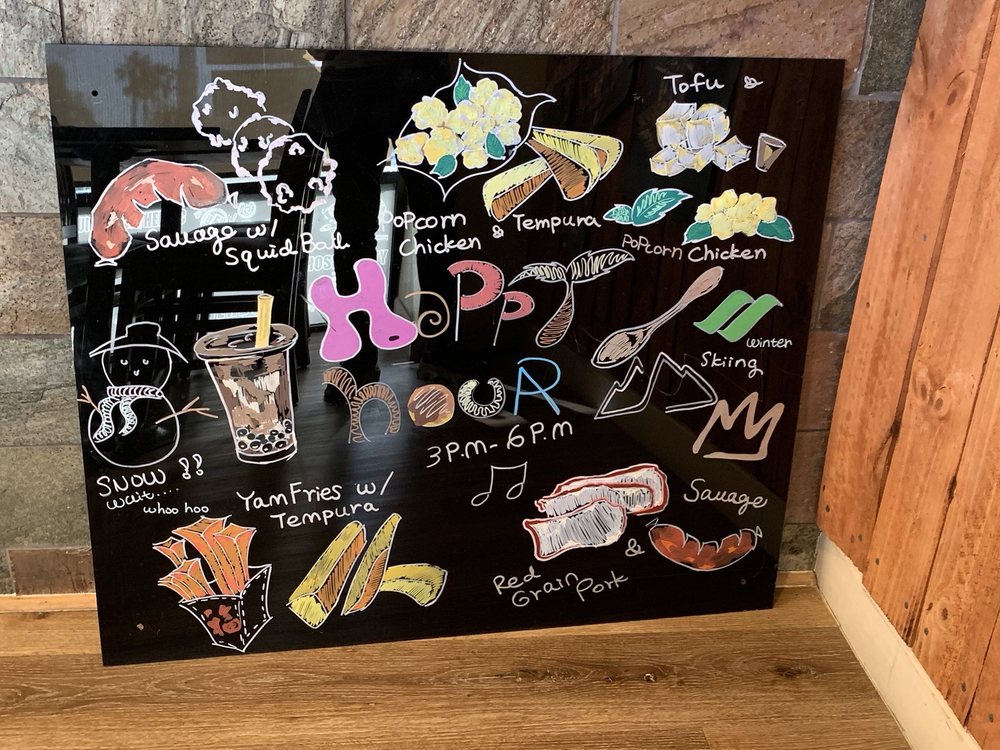 Tofu &
Sauage w/
Squid Ball
Popcorn
Chicken & Tempura
Popcorn Chicken
HaPPY
HOUR
3P.M-6P.M
winter
Skiing
SNOW !!
wait....
whoo hoo
YamFries w/
Tempura
Sauage
&
Red
Grain Pork